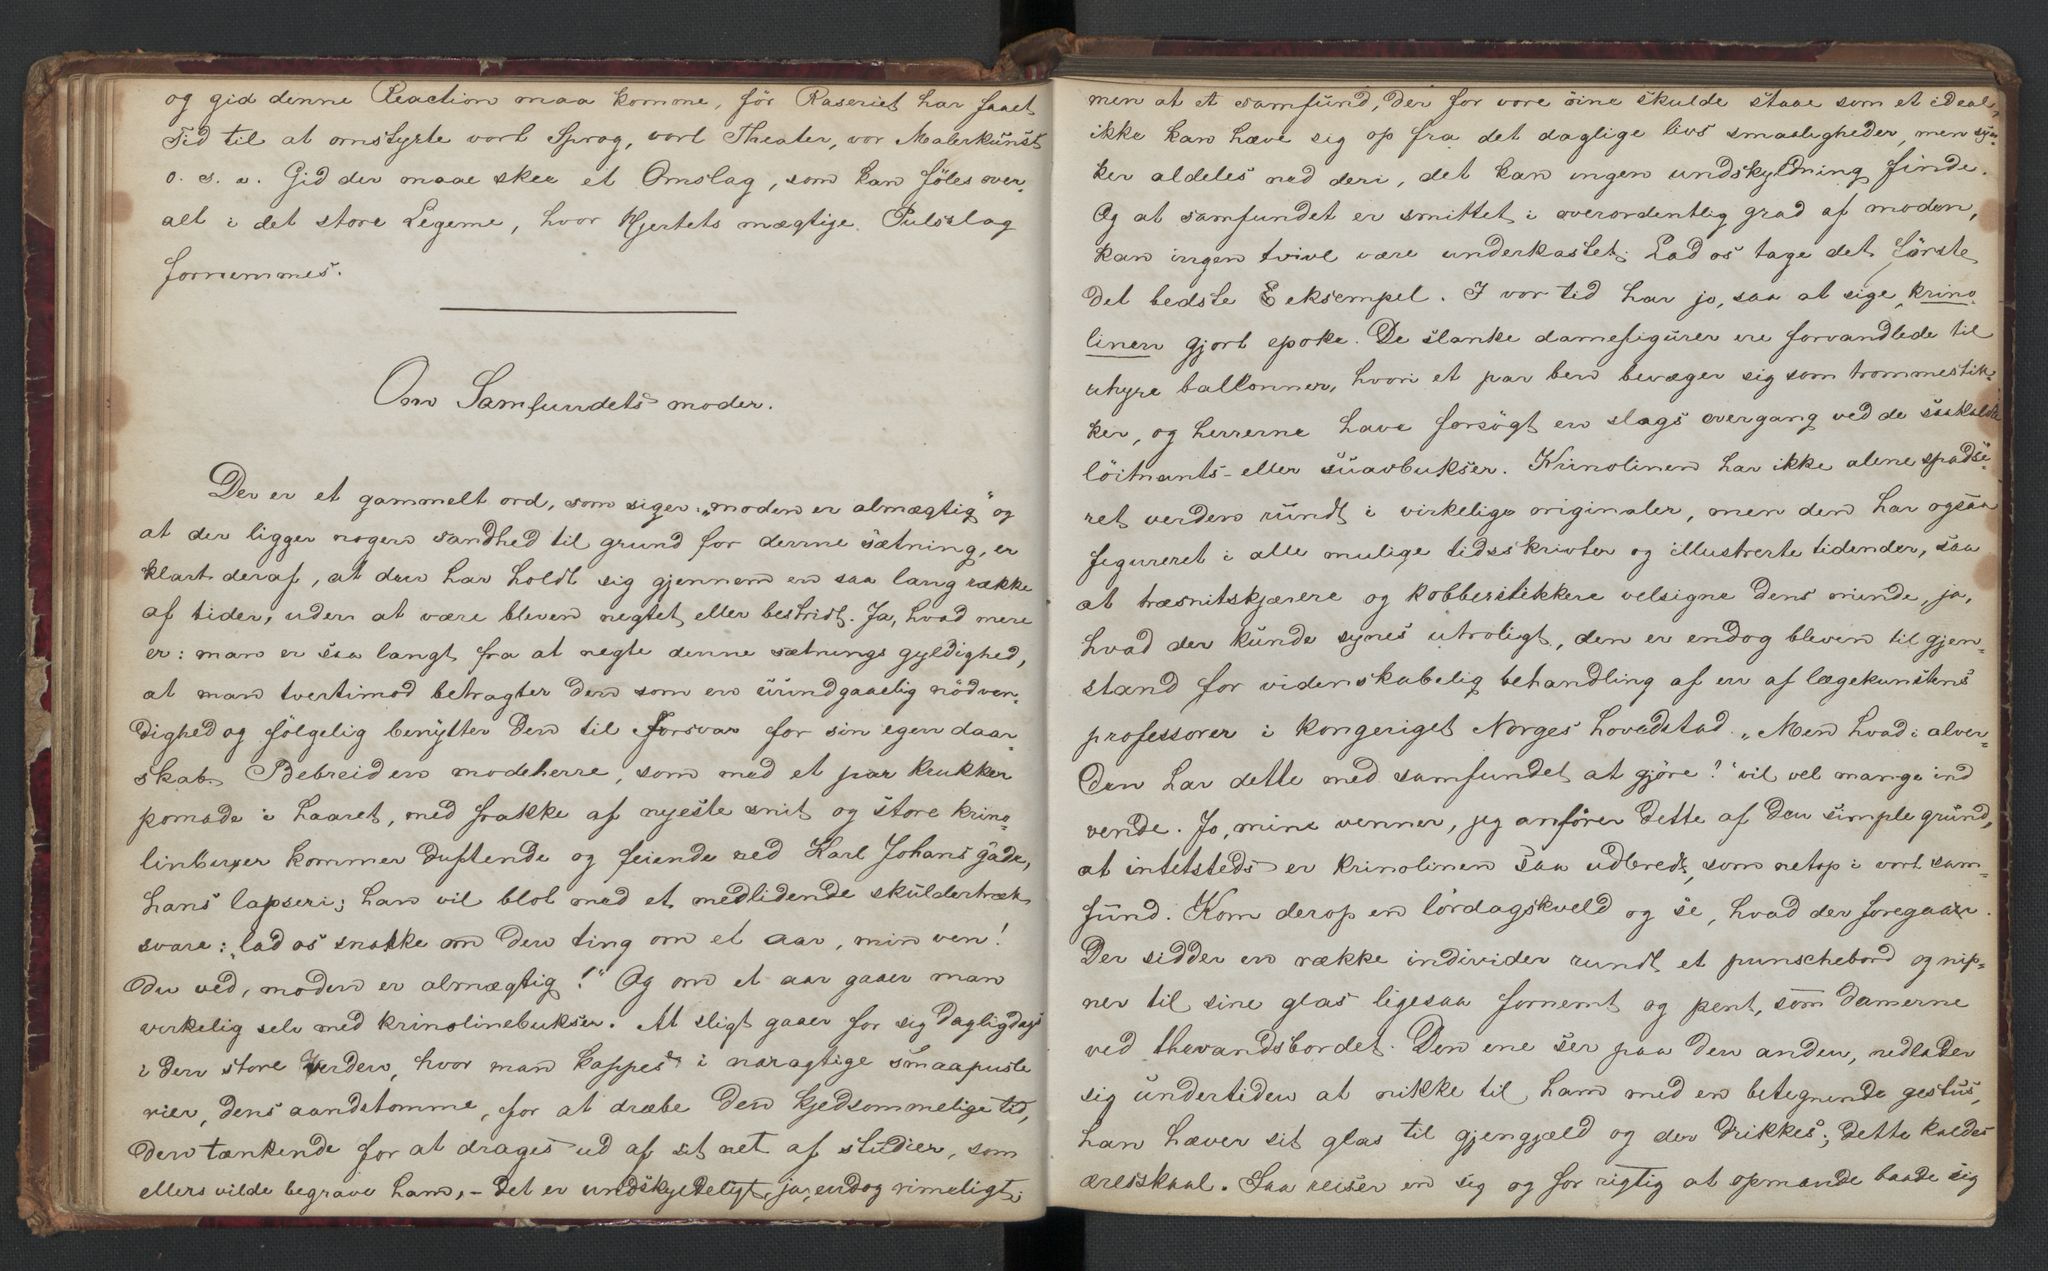 og gid denne Reaction maa komme, før Raseriet har faaet
Tid til at omstyrte vort Sprog, vort Theater, vor Malerkunst
o. s. v. Gid der maae skee et Omslag, som kan føles over-
alt i det store Legeme, hvor Hjertets mægtige Pulsslag
fornemmes.
Om Samfundets moder.
Der er et gammelt ord, som siger: „moden er almægtig“ og
at der ligger nogen sandhed til grund for denne sætning, er
klart deraf, at den har holdt sig gjennem en saa lang række
af tider, uden at være bleven negtet eller bestridt. Ja, hvad mere
er: man er saa langt fra at negte denne sætnings gyldighed,
at man tvertimod betragter den som en uundgaaelig nödven-
dighed og fölgelig benytter den til forsvar for sin egen daar-
skab. Bebreid en modeherre, som med et par krukker
pomade i haaret, med frakke af nyeste snit og store krino-
linbuxer kommer duftende og feiende ned Karl Johans gade,
hans lapseri; han vil blot med et medlidende skuldertræk
svare: „lad os snakke om den ting om et aar, min ven!
du ved, moden er almægtig!“ Og om et aar gaaer man
virkelig selv med krinolinebukser. At sligt gaaer for sig dagligdags
i den store verden, hvor man kappes i naragtige smaapuste-
rier, dens aandstomme, for at dræbe den kjedsommelige tid,
den tænkende for at drages ud af et net af studier, som
ellers vilde begrave ham, – det er undskyldeligt, ja, endog rimeligt;
men at et samfund, der for vore öine skulde staae som et ideal,
ikke kan hæve sig op fra det daglige livs smaaligheder, men syn-
ker aldeles ned deri, det kan ingen undskyldning finde.
Og at samfundet er smittet i overordentlig grad af moden,
kan ingen tvivl være underkastet. Lad os tage det første
det bedste Eeksempel. I vor tid har jo, saa at sige, krino-
linen gjort epoke. De slanke damefigurer ere forvandlede til
uhyre ballonner, hvori et par ben bevæger sig som trommestik-
ker, og herrerne have forsögt en slags overgang ved de saakaldte
löitnants- eller suavbukser. Krinolinen har ikke alene spadse-
ret verden rundt i virkelige originaler, men den har ogsaa
figureret i alle mulige tidsskrivter og illustrerte tidender, saa
at træsnitskjærere og kobberstikkere velsigne dens minde, ja,
hvad der kunde synes utroligt, den er endog bleven til gjen-
stand for videnskabelig behandling af en af lægekunstens
professorer i kongeriget Norges hovedstad. „Men hvad i alver-
den har dette med samfundet at gjöre?“ vil vel mange ind
vende. Jo, mine venner, jeg anfører dette af den simple grund,
at intetsteds er krinolinen saa udbredt, som netop i vort sam-
fund. Kom derop en lördagskveld og se, hvad der foregaar.
Der sidder en række individer rundt et punschebord og nip-
ner til sine glas ligesaa fornemt og pent, som damerne
ved thevandsbordet. Den ene ser paa den anden, nedlader
sig undertiden at nikke til ham med en betegnende gestus,
han hæver sit glas til gjengjæld og der drikkes; dette kaldes
æresskaal. Saa reiser en sig og for rigtig at opmande baade sig